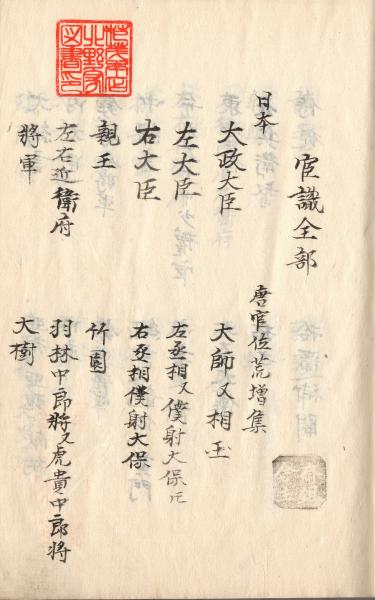 官識全部
日本 唐官位荒增集
大政大臣 大師又相王
左大臣 左丞相又僕射大保
右大臣 右丞相僕射大保
親王 竹園
左右近衛府 羽林中郎將又虎賁中郎將
將軍 大樹